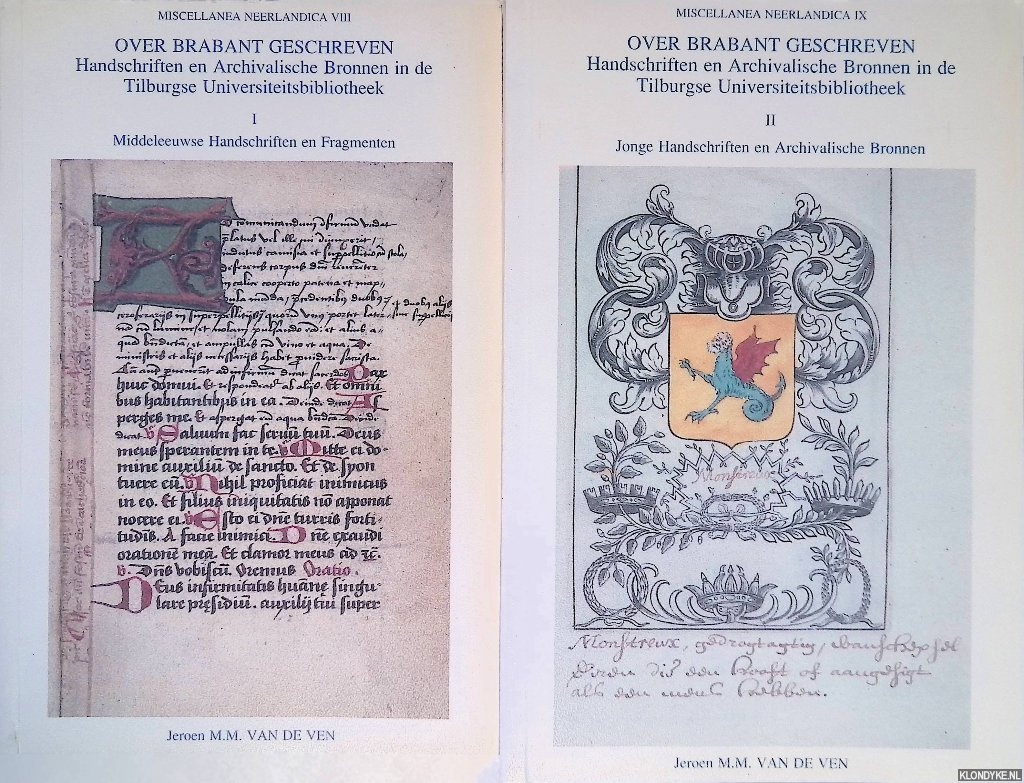 MISCELLANEA NEERLANDICA VIII
OVER BRABANT GESCHREVEN
Handschriften en Archivalische Bronnen in de
Tilburgse Universiteitsbibliotheek
I
Middeleeuwse Handschriften en Fragmenten
platus vel ille cui
calice cooperto patena et
ministris et alijs necessarijs habet providere sacrista.
Pax
huic domui. Et respondeat̃ ab alijs. Et omni
bus habitantibus in ea. Deinde dicat As
perges me. Et aspergat
dicat Saluum fac seruũ tuũ. Deus
meus sperantem in te. Mitte ei do-
mine auxiliũ de sancto. Et de syon
tuere eũ. Nihil proficiat inimicus
in eo. Et filius iniquitatis nõ apponat
nocere ei. Esto ei dñe turris forti-
tudis. A facie inimici. Dñe exaudi
orationẽ meã. Et clamor meus ad
Dñs vobiscũ. Oremus Oratio.
Deus infirmitatis humane singu-
lare presidiũ. auxilij tui super
Jeroen M.M. VAN DE VEN
MISCELLANEA NEERLANDICA IX
OVER BRABANT GESCHREVEN
Handschriften en Archivalische Bronnen in de
Tilburgse Universiteitsbibliotheek
II
Jonge Handschriften en Archivalische Bronnen
Monstreux, gedrogtagtig, wanschepsel
die een hooft of aangesigt
als een mens hebben.
Jeroen M.M. VAN DE VEN
KLONDYKE.NL